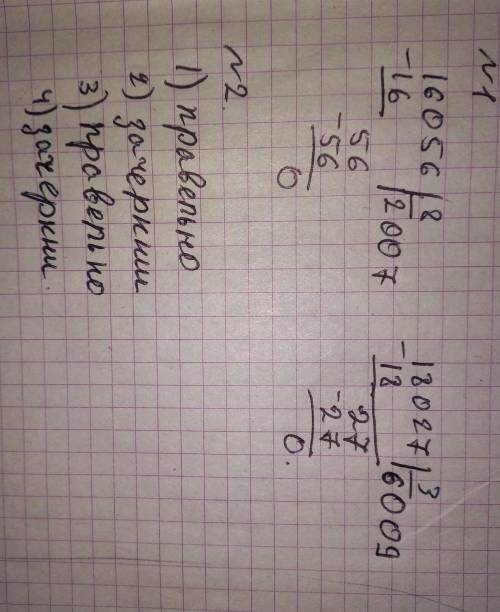 №1
16056 | 8
-16 | 2007
56
-56
0
18027 | 3
-18 | 6009
27
-27
0.
№2.
1) правельно
2) зачеркни
3) правельно
4) зачеркни.